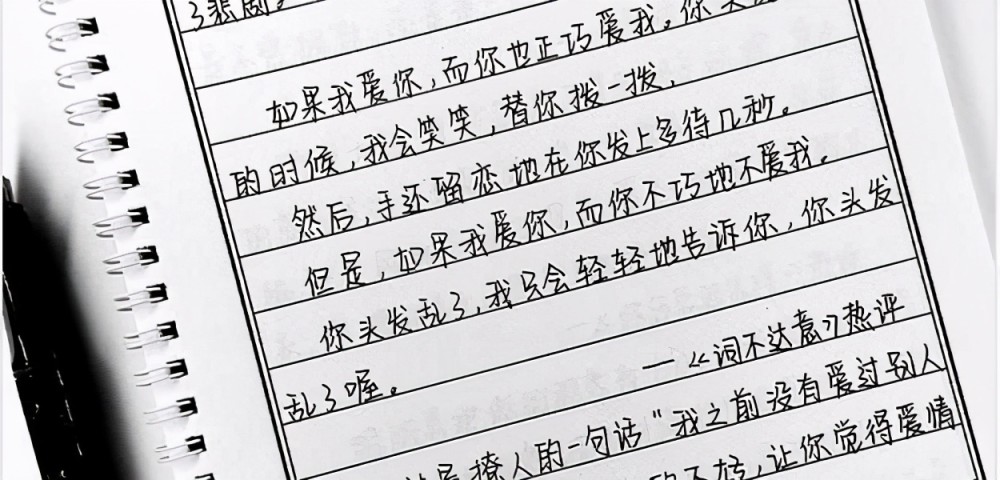 了悲剧。
如果我爱你，而你也正巧爱我。你头发
的时候，我会笑笑，替你拨一拨，
然后，手还留恋地在你发上多待几秒。
但是，如果我爱你，而你不巧地不爱我。
你头发乱了，我只会轻轻地告诉你，你头发
乱了喔。 ——《词不达意》热评
撩人的一句话“我之前没有爱过别人
让你觉得爱情